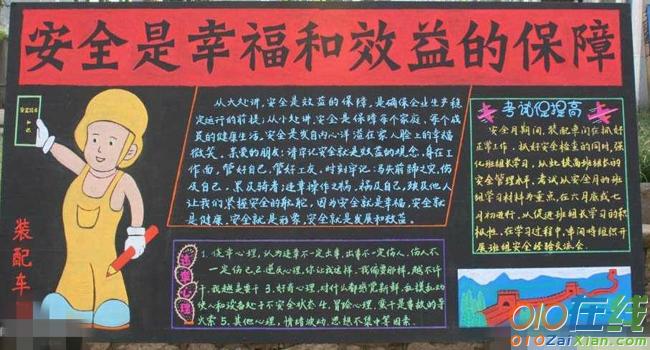 安全是幸福和效益的保障
安全读本
从大处讲,安全是效益的保障,是确保企业生产稳
定运行的前提;从小处讲,安全是保障每个家庭、每个成
员的健康生活。安全是发自内心洋溢在家人脸上的幸福
微笑。亲爱的朋友:请牢记安全就是效益的观念,身在工
作面,管好自己,管好工友。时刻牢记:
及自己,
让我们掌握安全的船舵,因为安全就是幸福,安全就
是健康,安全就是形象,安全就是发展和效益。
考试促提高
安全月期间,装配车间在抓好
正常工作、抓好安全检查的同时,强
化班组长学习,从此提高班组长的
安全管理水平,考试从安全月的班
组学习材料为重点,在六月底或七
月初进行,从促进班组长学习的积
极性,在学习过程中,车间将组织开
展班组安全经验交流会。
违章心理
1、侥幸心理,认为违章不一定出事,出事不一定伤人,伤人不
一定伤己 2、逆反心理,你让我这样,我偏要那样,越不许
干,我越是要干 3、好奇心理,对什么都感觉新鲜,乱摸乱动
使人和设备处于不安全状态 4、冒险心理,蛮干是事故的导
火索 5、其他心理,情绪波动,思想不集中等因素.
装配车
010在线
010ZaiXian.com